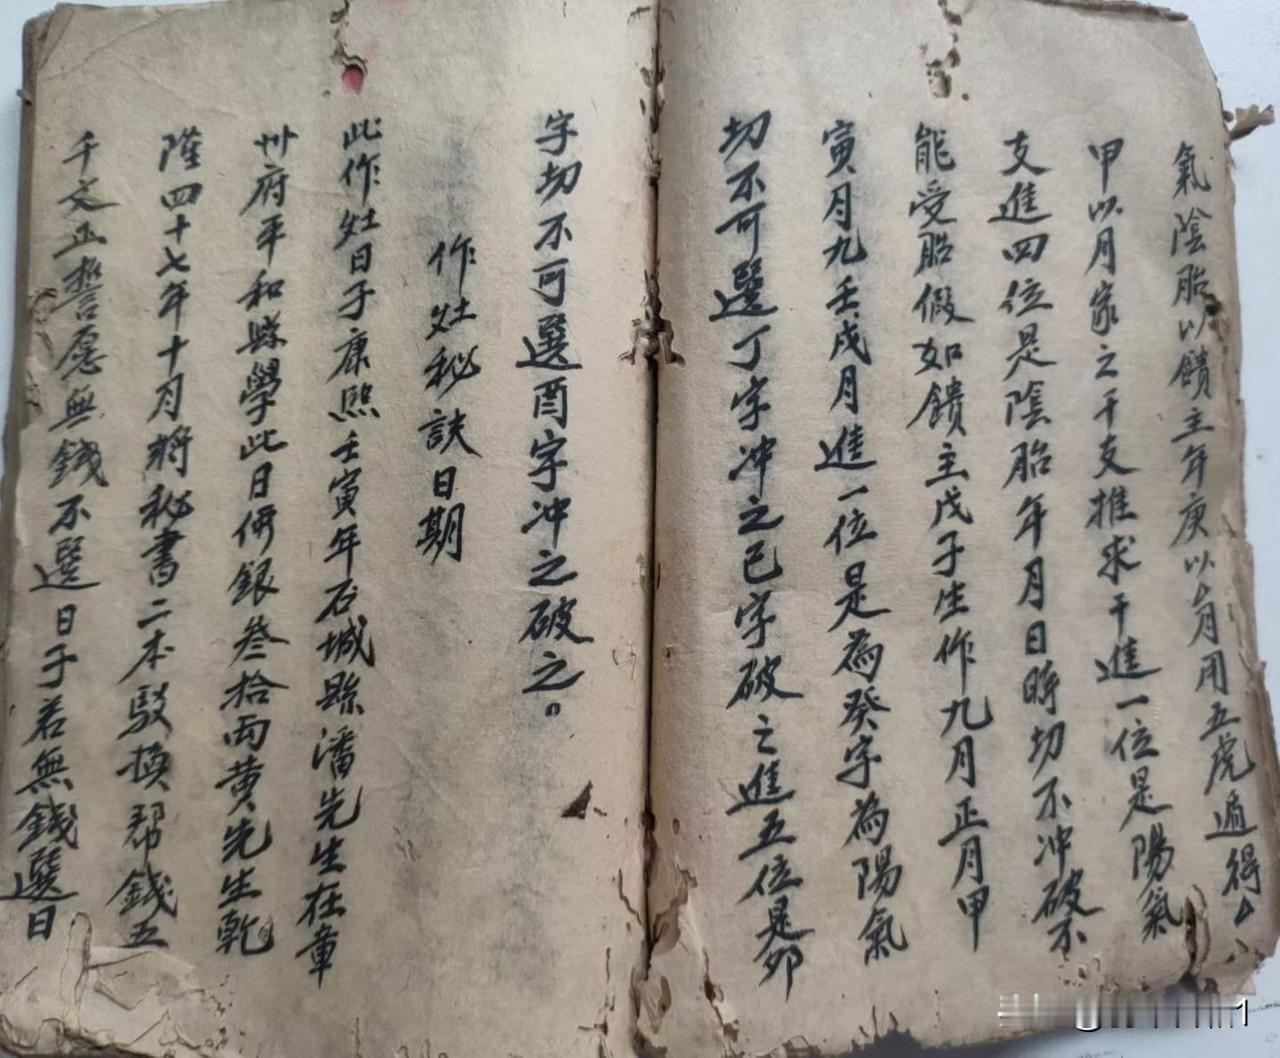 氣陰胎以饋主年庚以△月用五虎遁得△
甲以月家之干支推求干進一位是陽氣
支進四位是陰胎年月日時切不冲破不
能受胎假如饋主戊子生作九月正月甲
寅月九壬戌月進一位是為癸字為陽氣
切不可選丁字冲之己字破之進五位是卯
字切不可選酉字冲之破之。
作灶秘訣日期
此作灶日子康熙壬寅年石城縣潘先生在章
州府平和縣學此日併銀叁拾両黄先生乾
隆四十七年十月將秘書二本駁換帮錢五
千文正誓愿無錢不選日子若無錢選日